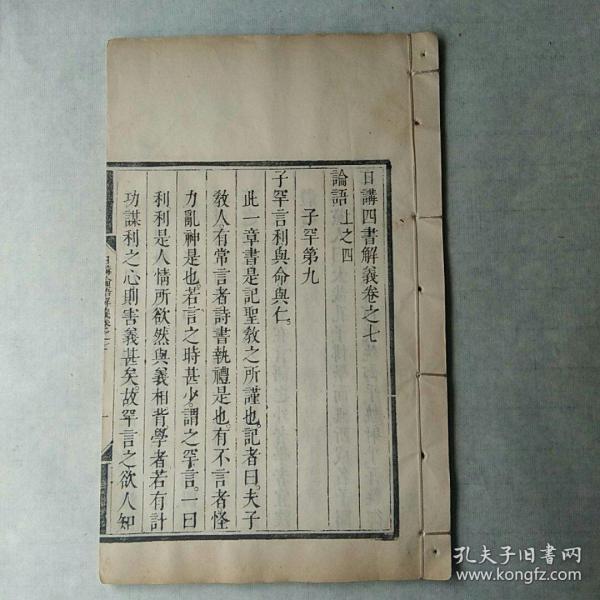 日講四書解義卷之七
論語上之四
子罕第九
子罕言利與命與仁。
此一章書是記聖教之所謹也。記者曰。夫子
教人有常言者詩書執禮是也。有不言者怪
力亂神是也。若言之時甚少。謂之罕言。一曰
利利是人情所欲然與義相背學者若有計
功謀利之心則害義甚矣。故罕言之欲人知
孔夫子旧书网
www.kongfz.com